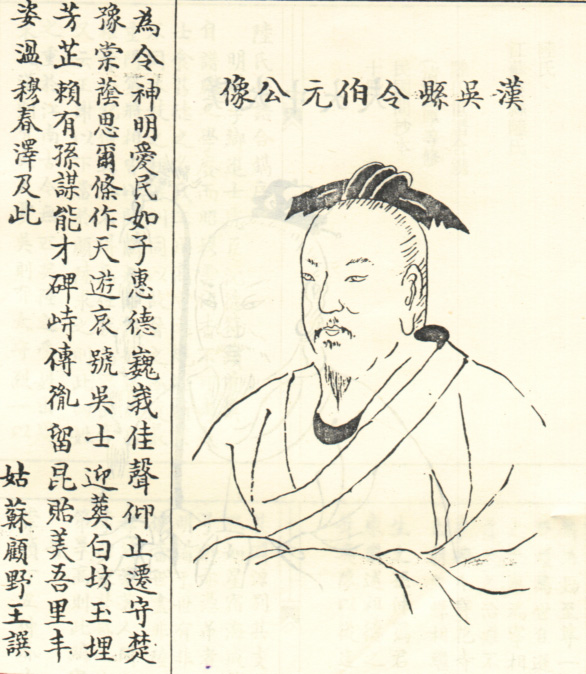 漢吳縣令伯元公像
為令神明愛民如子惠德巍峩佳聲仰止遷守楚
豫棠蔭思爾條作天遊哀號吳士迎葬白坊玉埋
芳芷賴有孫謀能才碑峙傳胤留昆貽美吾里丰
姿溫穆春澤及此
姑蘇顧野王譔